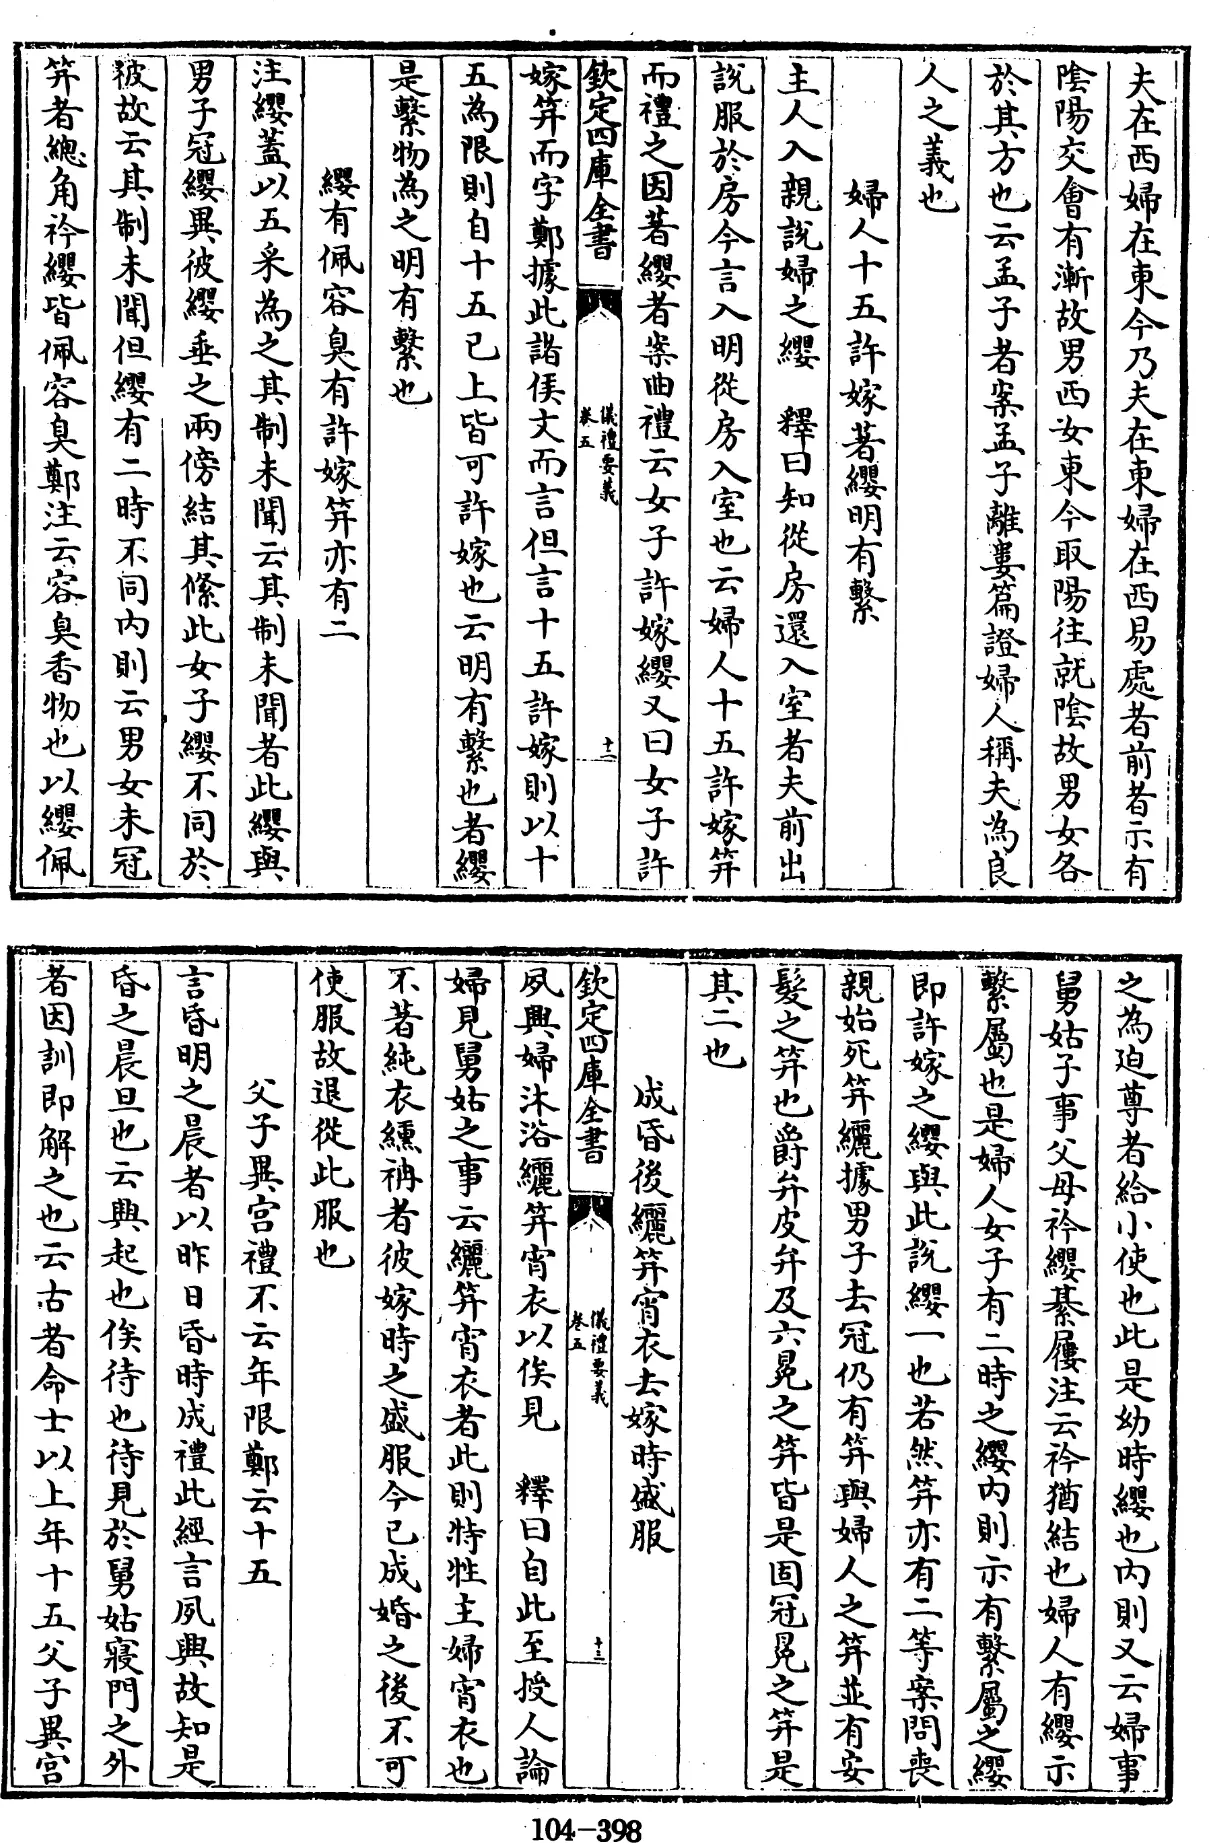 夫在西婦在東今乃夫在東婦在西易處者前者示有
陰陽交會有漸故男西女東今取陽往就陰故男女各
於其方也云孟子者案孟子離婁篇證婦人稱夫為良
人之義也
婦人十五許嫁著纓明有繫
主人入親說婦之纓　釋曰知從房還入室者夫前出
說服於房今言入明從房入室也云婦人十五許嫁笄
而禮之因著纓者案曲禮云女子許嫁纓又曰女子許
欽定四庫全書
儀禮要義
卷五
十二
嫁笄而字鄭據此諸侯文而言但言十五許嫁則以十
五為限則自十五已上皆可許嫁也云明有繫也者纓
是繫物為之明有繫也
纓有佩容臭有許嫁笄亦有二
注纓葢以五采為之其制未聞云其制未聞者此纓與
男子冠纓異彼纓垂之兩傍結其絛此女子纓不同於
彼故云其制未聞但纓有二時不同内則云男女未冠
笄者總角衿纓皆佩容臭鄭注云容臭香物也以纓佩
之為迫尊者給小使也此是幼時纓也内則又云婦事
舅姑子事父母衿纓綦屨注云衿猶結也婦人有纓示
繫屬也是婦人女子有二時之纓内則示有繫屬之纓
即許嫁之纓與此說纓一也若然笄亦有二等案問喪
親始死笄纚據男子去冠仍有笄與婦人之笄並有安
髮之笄也爵弁皮弁及六冕之笄皆是固冠冕之笄是
其二也
成昏後纚笄宵衣去嫁時盛服
夙興婦沐浴纚笄宵衣以俟見　釋曰自此至授人論
欽定四庫全書
儀禮要義
卷五
十三
婦見舅姑之事云纚笄宵衣者此則特牲主婦宵衣也
不著純衣纁袡者彼嫁時之盛服今已成婚之後不可
使服故退從此服也
父子異宮禮不云年限鄭云十五
言昏明之晨者以昨日昏時成禮此經言夙興故知是
昏之晨旦也云興起也俟待也待見於舅姑寢門之外
者因訓即解之也云古者命士以上年十五父子異宮
104-398